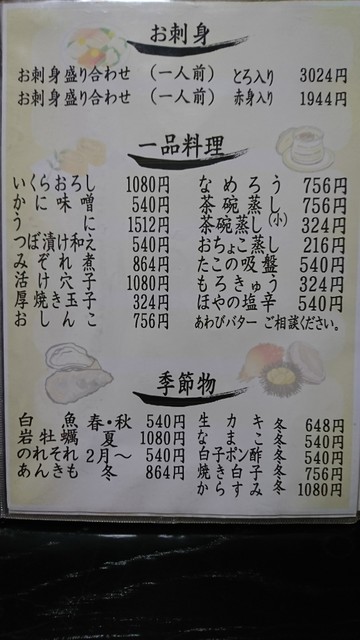 お刺身
お刺身盛り合わせ （一人前） とろ入り 3024円
お刺身盛り合わせ （一人前） 赤身入り 1944円
一品料理
いくらおろし 1080円
かに味噌 540円
うに 1512円
つぼ漬け和え 540円
みぞれ煮 864円
活け穴子 1080円
厚焼き玉子 324円
おしんこ 756円
なめろう 756円
茶碗蒸し 756円
茶碗蒸し(小) 324円
おちょこ蒸し 216円
たこの吸盤 540円
もろきゅう 324円
ほやの塩辛 540円
あわびバター ご相談ください。
季節物
白魚 春・秋 540円
岩牡蠣 夏 1080円
のれそれ 2月～ 540円
あんきも 冬 864円
生カキ 冬 648円
なまこ 冬 540円
白子ポン酢 冬 540円
焼き白子 冬 756円
からすみ 冬 1080円